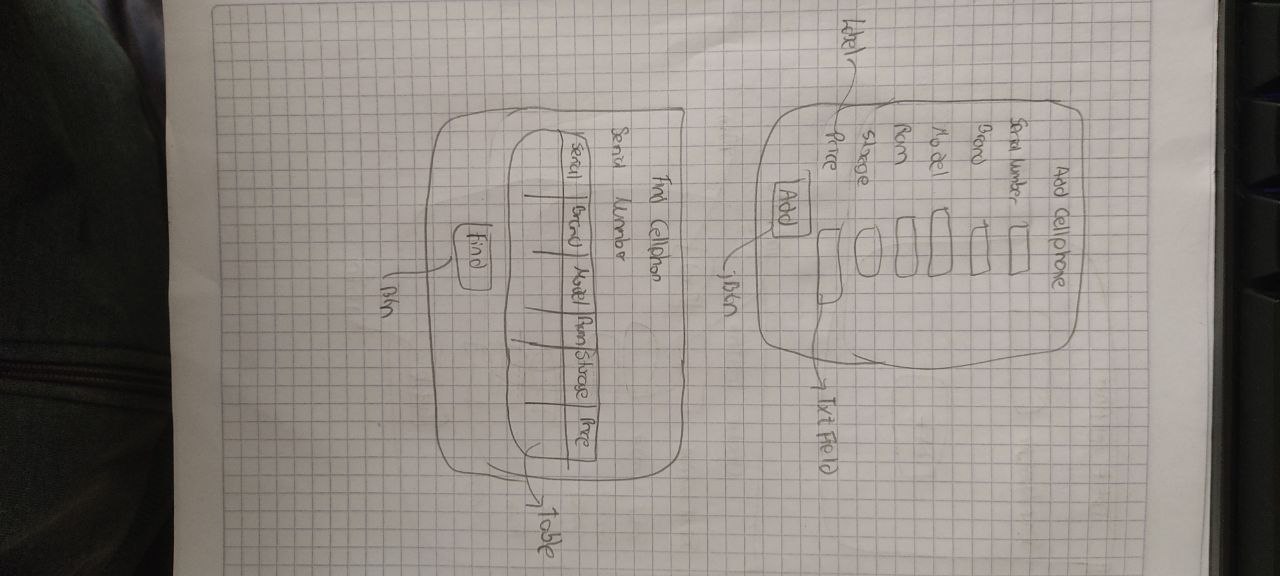 Add Cellphone
Serial Number
Brand
Model
Ram
Storage
Price
Label
Add
jBtn
Txt Field
Find Cellphon
Serial Number
Serial Brand Model Ram Storage Price
Table
Find
jBtn